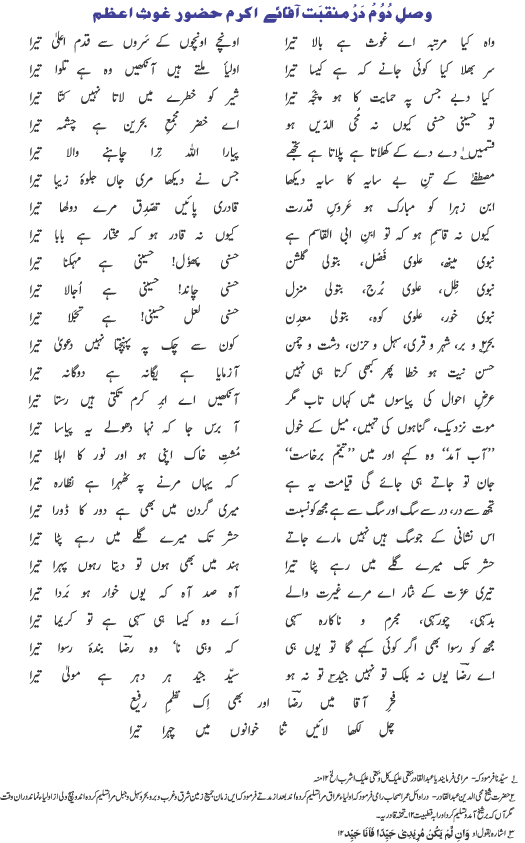 وصلِ دُوُم دَرْ منقبَت آقائے اکرم حضور غوث اعظم
واہ کیا مرتبہ اے غوث ہے بالا تیرا اونچے اونچوں کے سَروں سے قدم اعلیٰ تیرا
سر بھلا کیا کوئی جانے کہ ہے کیسا تیرا اولیا ملتے ہیں آنکھیں وہ ہے تلوا تیرا
کیا دبے جس پہ حمایت کا ہو پنجہ تیرا شیر کو خطرے میں لاتا نہیں کتّا تیرا
تو حسینی حسنی کیوں نہ مُحیُ الدّیں ہو اے خضر مجمعِ بحرین ہے چشمہ تیرا
قسمیں دے دے کے کھلاتا ہے پلاتا ہے تجھے پیارا اللہ تِرا چاہنے والا تیرا
مصطفیٰ کے تنِ بے سایہ کا سایہ دیکھا جس نے دیکھا مری جاں جلوۂ زیبا تیرا
ابنِ زہرا کو مبارک ہو عَروسِ قدرت قادری پائیں تصدّق مرے دولھا تیرا
کیوں نہ قاسم ہو کہ تو ابنِ ابی القاسم ہے کیوں نہ قادر ہو کہ مختار ہے بابا تیرا
نبوی مینھ، علوی فصل، بتولی گلشن حسنی پھول! حسینی ہے مہکنا تیرا
نبوی ظِل، علوی بُرج، بتولی منزل حسنی چاند! حسینی ہے اُجالا تیرا
نبوی خور، علوی کوہ، بتولی معدِن حسنی لعل! حسینی ہے تجلّا تیرا
بحر و بر، شہر و قری، سہل و حزن، دشت و چمن کون سے چک پہ پہنچتا نہیں دعویٰ تیرا
حسن نیت ہو خطا پھر کبھی کرتا ہی نہیں آزمایا ہے یگانہ ہے دوگانہ تیرا
عرضِ احوال کی پیاسوں میں کہاں تاب مگر آنکھیں اے ابرِ کرم تکتی ہیں رستا تیرا
موت نزدیک، گناہوں کی تہیں، میل کے خول آ برس جا کہ نہا دھولے یہ پیاسا تیرا
’’آب آمد‘‘ وہ کہے اور میں ’’تیمّم برخاست‘‘ مُشتِ خاک اپنی ہو اور نور کا اہلا تیرا
جان تو جاتے ہی جائے گی قیامت یہ ہے کہ یہاں مرنے پہ ٹھہرا ہے نظارہ تیرا
تجھ سے در، در سے سگ اور سگ سے ہے مجھ کو نسبت میری گردن میں بھی ہے دور کا ڈورا تیرا
اس نشانی کے جو سگ ہیں نہیں مارے جاتے حشر تک میرے گلے میں رہے پٹا تیرا
حشر تک میرے گلے میں رہے پٹا تیرا ہند میں بھی ہوں تو دیتا رہوں پہرا تیرا
تیری عزت کے نثار اے مرے غیرت والے آہ صد آہ کہ یوں خوار ہو بَردا تیرا
بدسہی، چورسہی، مجرم و ناکارہ سہی اَے وہ کیسا ہی سہی ہے تو کریما تیرا
مجھ کو رسوا بھی اگر کوئی کہے گا تو یوں ہی کہ وہی نا، وہ رضاؔ بندۂ رسوا تیرا
اے رضاؔ یوں نہ بلک تو نہیں جیّد تو نہ ہو سیّد جیّد ہر دہر ہے مولیٰ تیرا
فخرِ آقا میں رضاؔ اور بھی اِک نظمِ رفیع
چل لکھا لائیں ثنا خوانوں میں چہرا تیرا
۳ اشارہ بقول او وَاِن لَّمْ یَکُنْ مُرِیْدِیْ جَیِّدًا فَاَنَا جَیِّد ۱۲